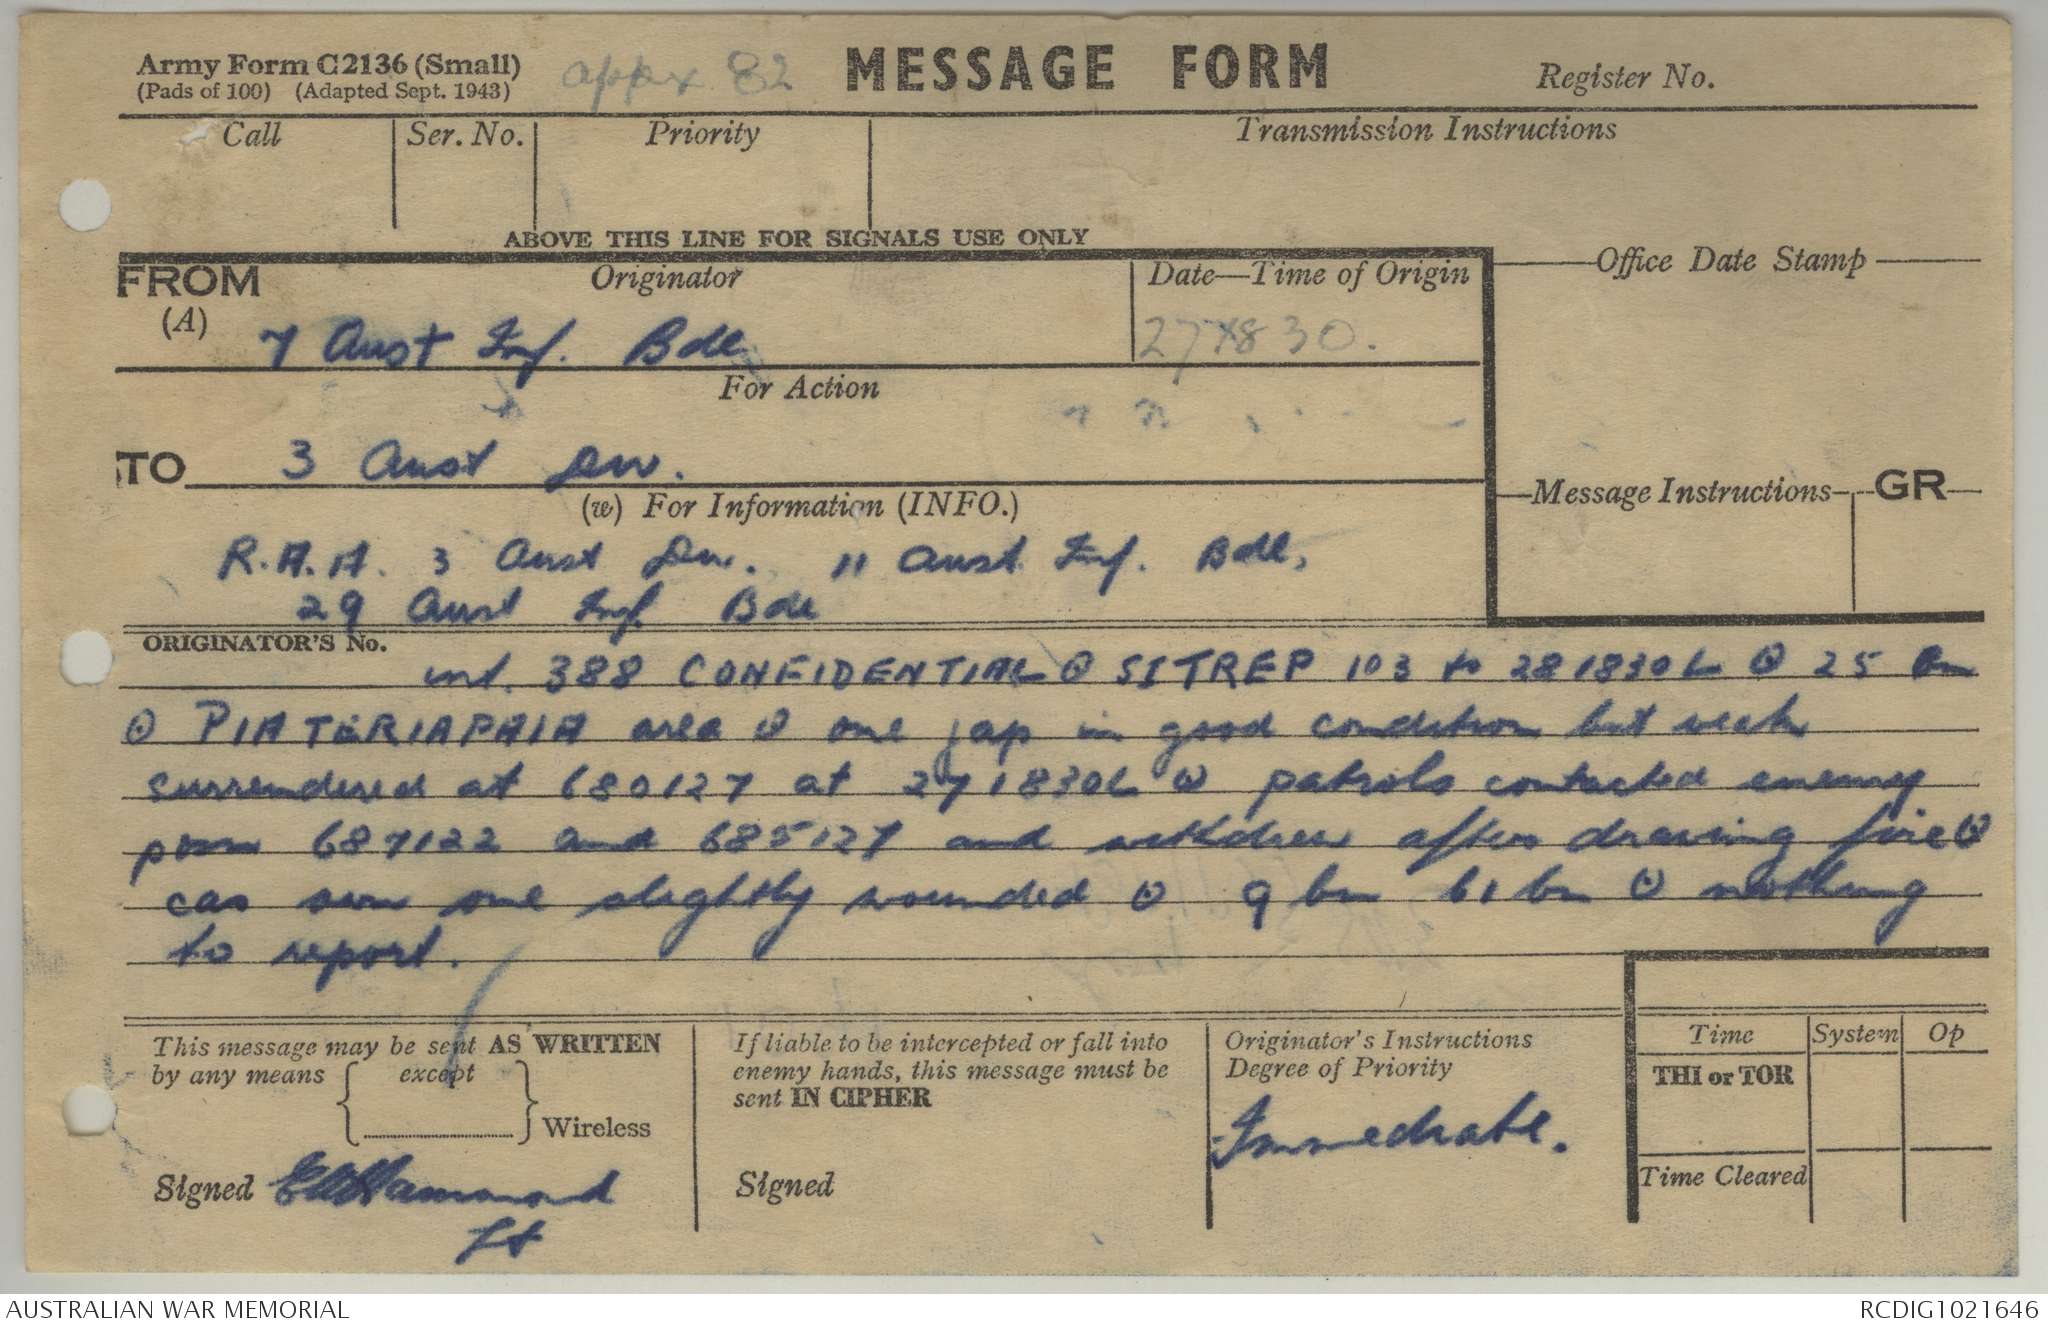 Army Form C2136 (Small)
(Pads of 100) (Adapted Sept. 1943)
appx 82
MESSAGE FORM
Register No.
Call
Ser. No.
Priority
Transmission Instructions
ABOVE THIS LINE FOR SIGNALS USE ONLY
FROM
(A)
Originator
Date—Time of Origin
Office Date Stamp
7 Aust Inf. Bde
For Action
TO
3 Aust Div.
(w) For Information (INFO.)
Message Instructions
GR
R.A.A. 3 Aust Div. 11 Aust. Inf. Bde,
29 Aust Inf. Bde
ORIGINATOR'S No.
int. 388 CONFIDENTIAL ⊙ SITREP 103 to 281830L ⊙ 25 Bn
⊙ PIATERIAPAIA area ⊙ one jap in good condition but weak
surrendered at 680127 at 271830L ⊙ patrols contacted enemy
posn 687122 and 685127 and withdrew after drawing fire ⊙
cas own one slightly wounded ⊙ 9 bn 61 bn ⊙ nothing
to report.
This message may be sent AS WRITTEN
by any means except
Wireless
Signed
Hammond
Lt
If liable to be intercepted or fall into
enemy hands, this message must be
sent IN CIPHER
Signed
Originator's Instructions
Degree of Priority
Immediate.
Time
System
Op
THI or TOR
Time Cleared
AUSTRALIAN WAR MEMORIAL
RCDIG1021646